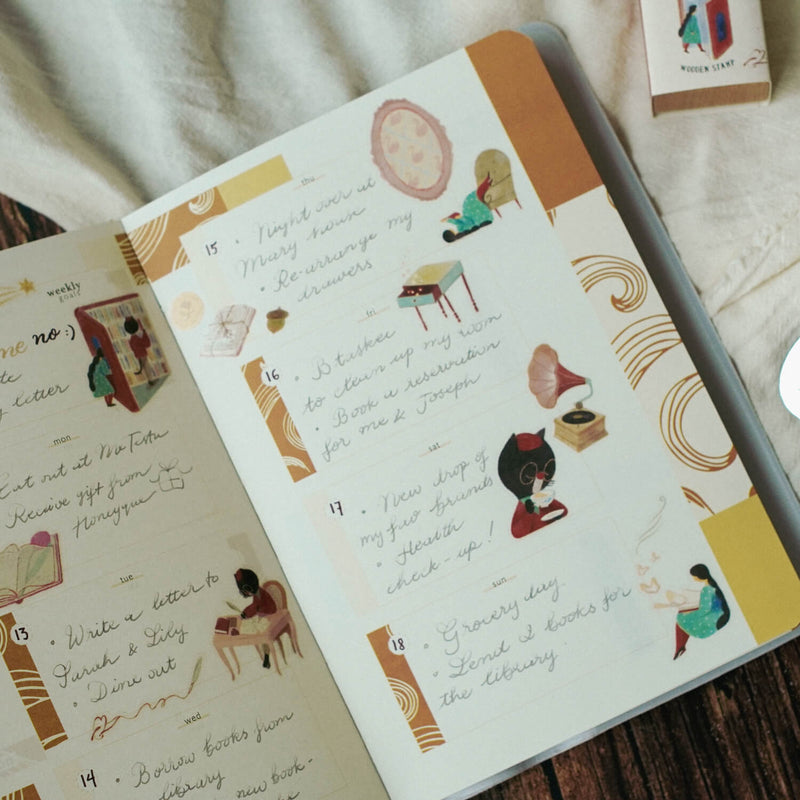 weekly
goals
me no :)
letter
mon
Eat out at Mo Testu
Receive gift from
Honeyque
tue
13
• Write a letter to
Sarah & Lily
• Dine out
wed
14
• Borrow books from
library
new book-
thu
15
• Night over at
Mary house
• Re-arrange my
drawers
fri
16
• B tusker
to clean up my room
• Book a reservation
for me & Joseph
sat
17
• New drop of
my fav brands
• Health
check-up!
sun
18
• Grocery day
• Lend 2 books for
the library.
WOODEN STAMP